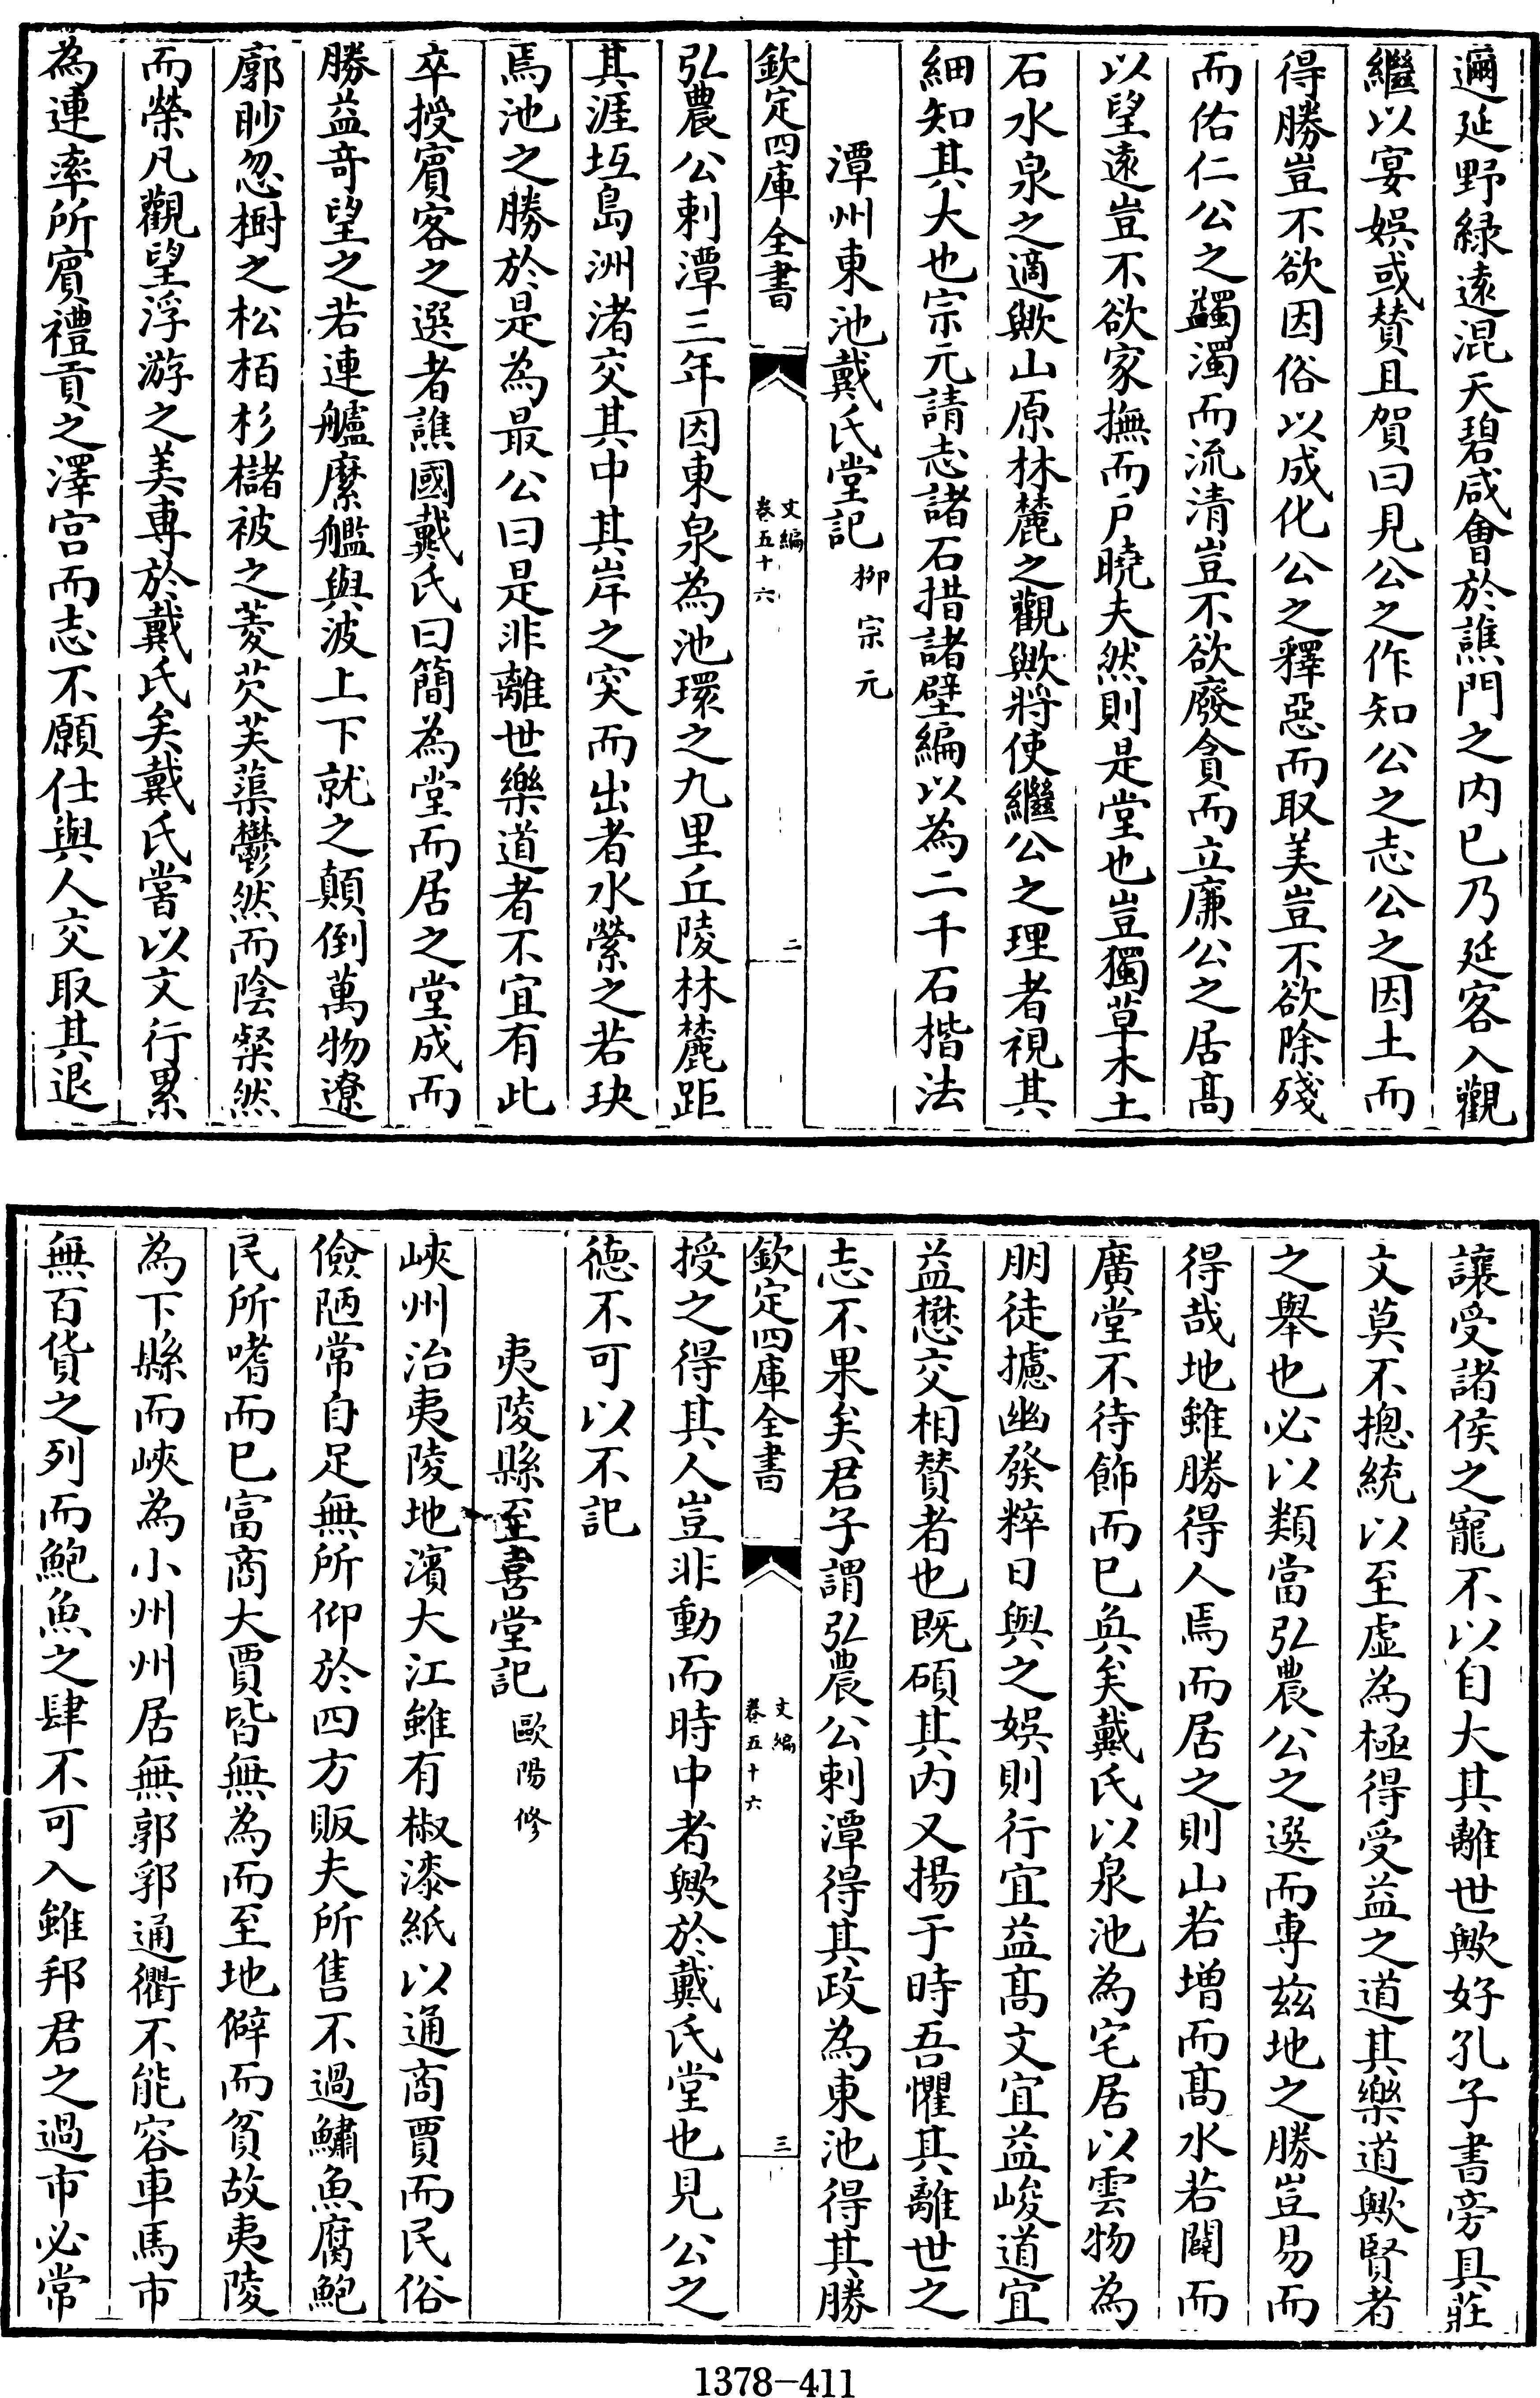 邇延野緑遠混天碧咸會於譙門之内已乃延客入觀
繼以宴娛或賛且賀曰見公之作知公之志公之因土而
得勝豈不欲因俗以成化公之釋惡而取美豈不欲除殘
而佑仁公之蠲濁而流清豈不欲廢貪而立廉公之居髙
以望逺豈不欲家撫而戸曉夫然則是堂也豈獨草木土
石水泉之適歟山原林麓之觀歟將使繼公之理者視其
細知其大也宗元請志諸石措諸壁編以為二千石楷法
潭州東池戴氏堂記 柳宗元
欽定四庫全書
文編
卷五十六
二
弘農公刺潭三年因東泉為池環之九里丘陵林麓距
其涯坻島洲渚交其中其岸之突而出者水縈之若玦
焉池之勝於是為最公曰是非離世樂道者不宜有此
卒授賔客之選者譙國戴氏曰簡為堂而居之堂成而
勝益竒望之若連艫縻艦與波上下就之顛倒萬物遼
廓眇忽樹之松栢杉櫧被之菱芡芙蕖鬱然而陰粲然
而榮凡觀望浮游之美専於戴氏矣戴氏嘗以文行累
為連率所賔禮貢之澤宫而志不願仕與人交取其退
讓受諸侯之寵不以自大其離世歟好孔子書旁具莊
文莫不摠統以至虚為極得受益之道其樂道歟賢者
之舉也必以類當弘農公之選而専兹地之勝豈易而
得哉地雖勝得人焉而居之則山若増而髙水若闢而
廣堂不待飾而已奐矣戴氏以泉池為宅居以雲物為
朋徒攄幽發粹日與之娛則行宜益髙文宜益峻道宜
益懋交相賛者也既碩其内又揚于時吾懼其離世之
志不果矣君子謂弘農公刺潭得其政為東池得其勝
欽定四庫全書
文編
卷五十六
三
授之得其人豈非動而時中者歟於戴氏堂也見公之
徳不可以不記
夷陵縣至喜堂記 歐陽修
峽州治夷陵地濱大江雖有椒漆紙以通商賈而民俗
儉陋常自足無所仰於四方販夫所售不過鱐魚腐鮑
民所嗜而已富商大賈皆無為而至地僻而貧故夷陵
為下縣而峽為小州州居無郭郛通衢不能容車馬市
無百貨之列而鮑魚之肆不可入雖邦君之過市必常
1378-411